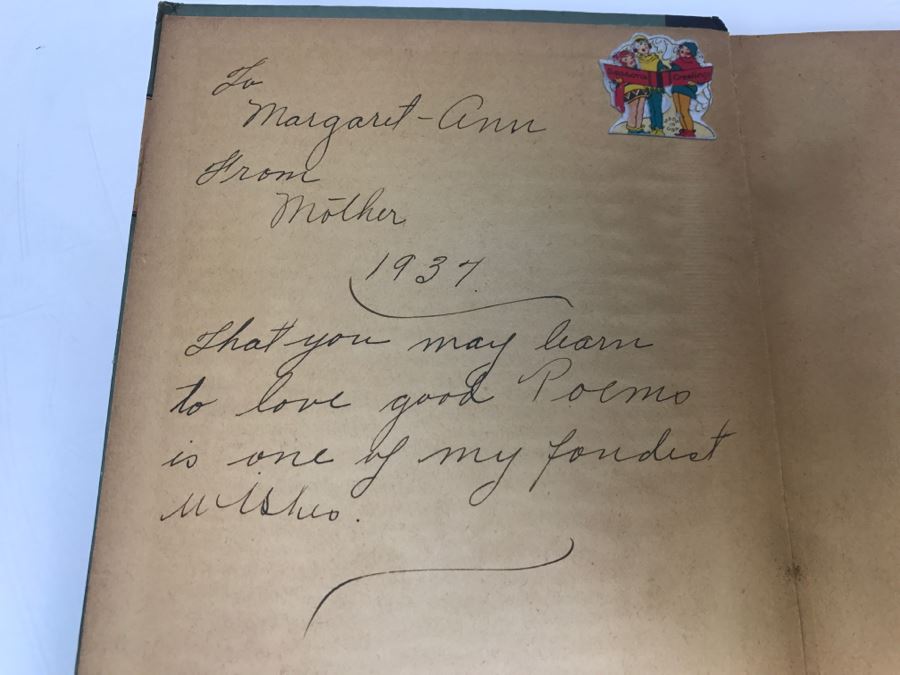 To
Margaret-Ann
From
Mother
1937.
That you may learn
to love good Poems
is one of my fondest
Wishes.
Season's Greetings